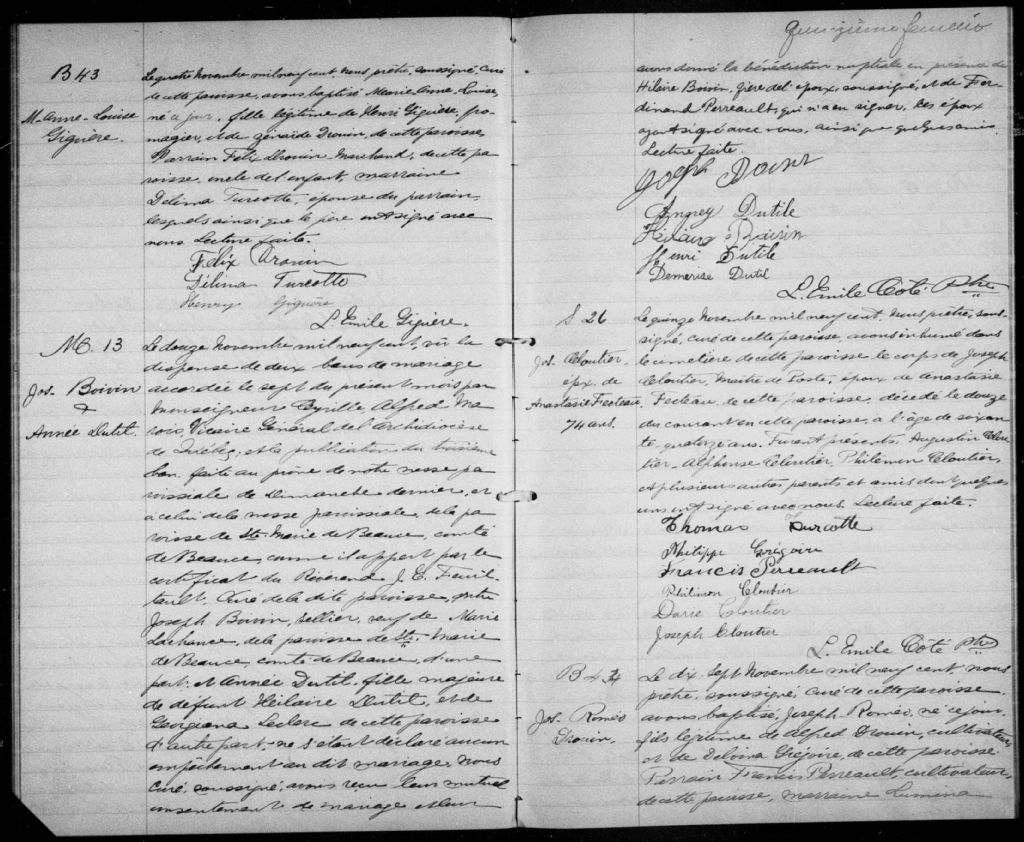 B 43
M-Anne-Louise
Giguère.
Le quatre Novembre mil neuf cent Nous prêtre, soussigné, curé
de cette paroisse, avons baptisé Marie-Anne-Louise,
né ce jour, fille légitime de Henri Giguère, fro-
mager, et de Zénaïde Drouin, de cette paroisse.
Parrain Félix Drouin Marchand, de cette pa
roisse, oncle de l'enfant, marraine
Délima Turcotte, épouse du parrain,
lesquels ainsi que le père ont signé avec
nous Lecture faite.
Félix Drouin
Délima Turcotte
Henry Giguère
L. Emile Giguère.
M. 13
Jos. Boivin
&
Année Dutil.
Le douze Novembre mil neuf cent, vu la
dispense de deux bans de mariage
accordée le sept du présent mois par
Monseigneur Cyrille Alfred Ma
rois, Vicaire Général de l'archidiocèse
de Québec, et la publication du troisième
ban faite au prône de notre messe pa
roissiale de Dimanche dernier, et
à celui de la messe paroissiale de la pa
roisse de Ste Marie de Beauce, comté
de Beauce, comme il appert par le
certificat du Révérend J. E. Feuil-
tault, Curé de la dite paroisse, entre
Joseph Boivin, sellier, veuf de Marie
Lachance, de la paroisse de Ste-Marie
de Beauce, comté de Beauce, d'une
part, et Année Dutil, fille majeure
de défunt Hilaire Dutil, et de
Georgiana Leclerc de cette paroisse
d'autre part, ne s'étant déclaré aucun
empêchement au dit mariage, nous
Curé, soussigné, avons reçu leur mutuel
consentement de mariage et leur
Quinzième feuillet
avons donné la bénédiction nuptiale en présence de
Hilaire Boivin, frère de l'époux, soussigné, et de Fer-
dinand Perreault, qui n'a su signer. Les époux
ont signé avec nous, ainsi que quelques amis.
Lecture faite.
Joseph
Dutile
Hilaire Boivin
Henri Dutile
Demerise Dutil
L. Emile Côté Ptre
S 26
Jos. Cloutier
épx. de
Anastasie Fecteau.
74 ans.
Le quinze Novembre mil neuf cent, Nous prêtre, sous-
signé, curé de cette paroisse, avons inhumé dans
le cimetière de cette paroisse le corps de Joseph
Cloutier, Maître de Poste, époux de Anastasie
Fecteau, de cette paroisse, décédé le douze
du courant en cette paroisse, à l'âge de soixan
te, quatorze ans. Furent présents, Augustin Clou
tier, Alphonse Cloutier, Philémon Cloutier,
et plusieurs autres parents et amis dont quelques
uns ont signé avec nous. Lecture faite.
Thomas Turcotte
Philippe Grégoire
Francis Perreault
Philémon Cloutier
Darie Cloutier
Joseph Cloutier
L. Emile Côté Ptre
B 44
Jos. Roméo
Drouin.
Le dix, sept Novembre mil neuf cent, nous
prêtre, soussigné, curé de cette paroisse
avons baptisé, Joseph Roméo, né ce jour,
fils légitime de Alfred Drouin, cultivateur,
et de Delvina Grégoire, de cette paroisse.
Parrain Francis Perreault, cultivateur,
de cette paroisse, marraine Lumina